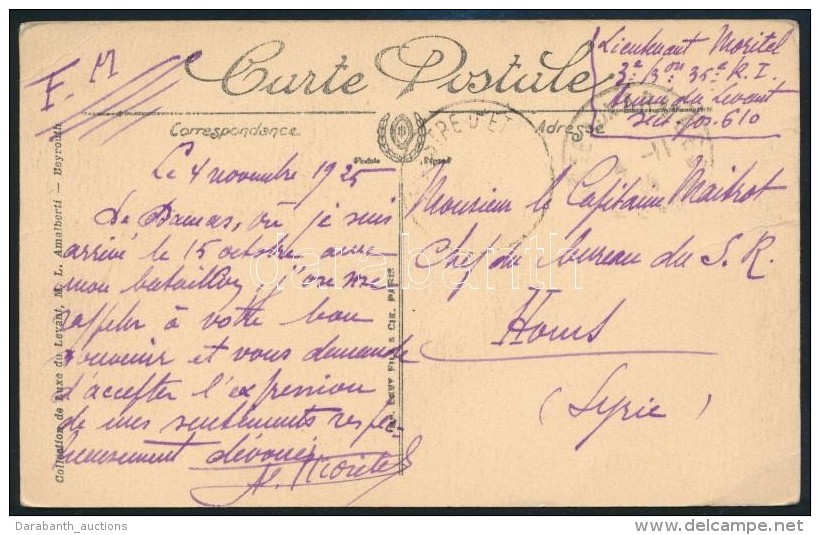 F. M
Carte Postale
Lieutenant Moritel
3e Bon 35e R. I.
Armée du Levant
Sec pos. 610
Correspondance
Adresse
Le 4 novembre 1925
De Damas, où je suis
arrivé le 15 octobre avec
mon bataillon, j'ose me
rappeler à votre bon
souvenir et vous demande
d'accepter l'expression
de mes sentiments respec
tueusement dévoués
Moritel
Monsieur le Capitaine Maitrot
Chef du bureau du S. R.
Homs
(Syrie)
Collection de Luxe du Levant, M. L. Amalberti — Beyrouth
LEVY FILS & CIE, PARIS
darabanth
Darabanth_auctions
http://www.delcampe.net